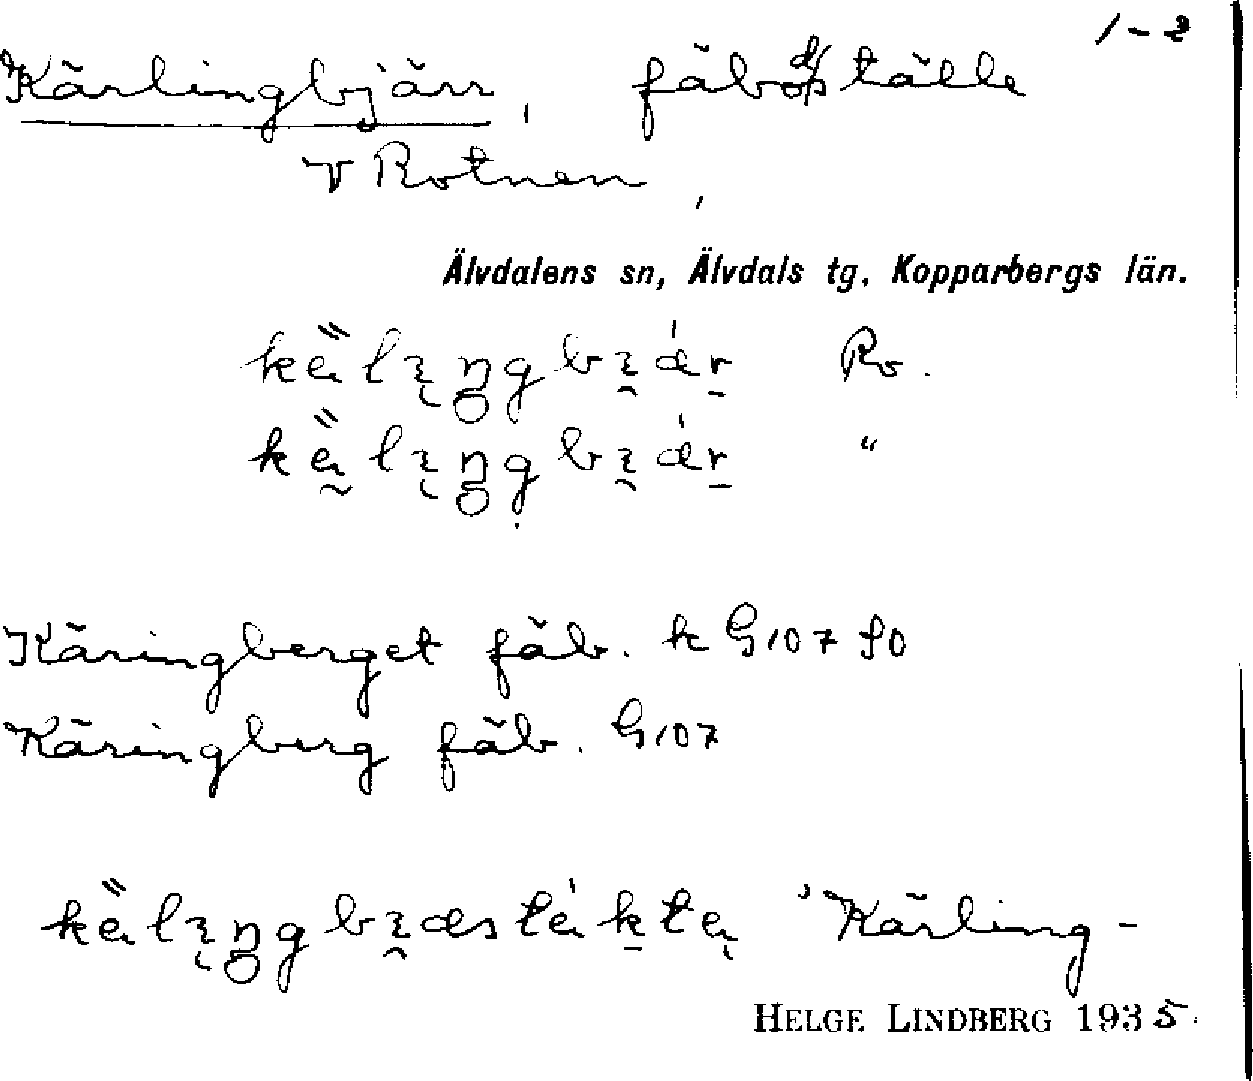 1-2
Kärlingbjärr, fäbodställe
V Rotnen,
Älvdalens sn, Älvdals tg, Kopparbergs län.
Ro.
"
Käringberget fäb. k G107 SO
Käringberg fäb. G107
'Kärling-
HELGE LINDBERG 1935.